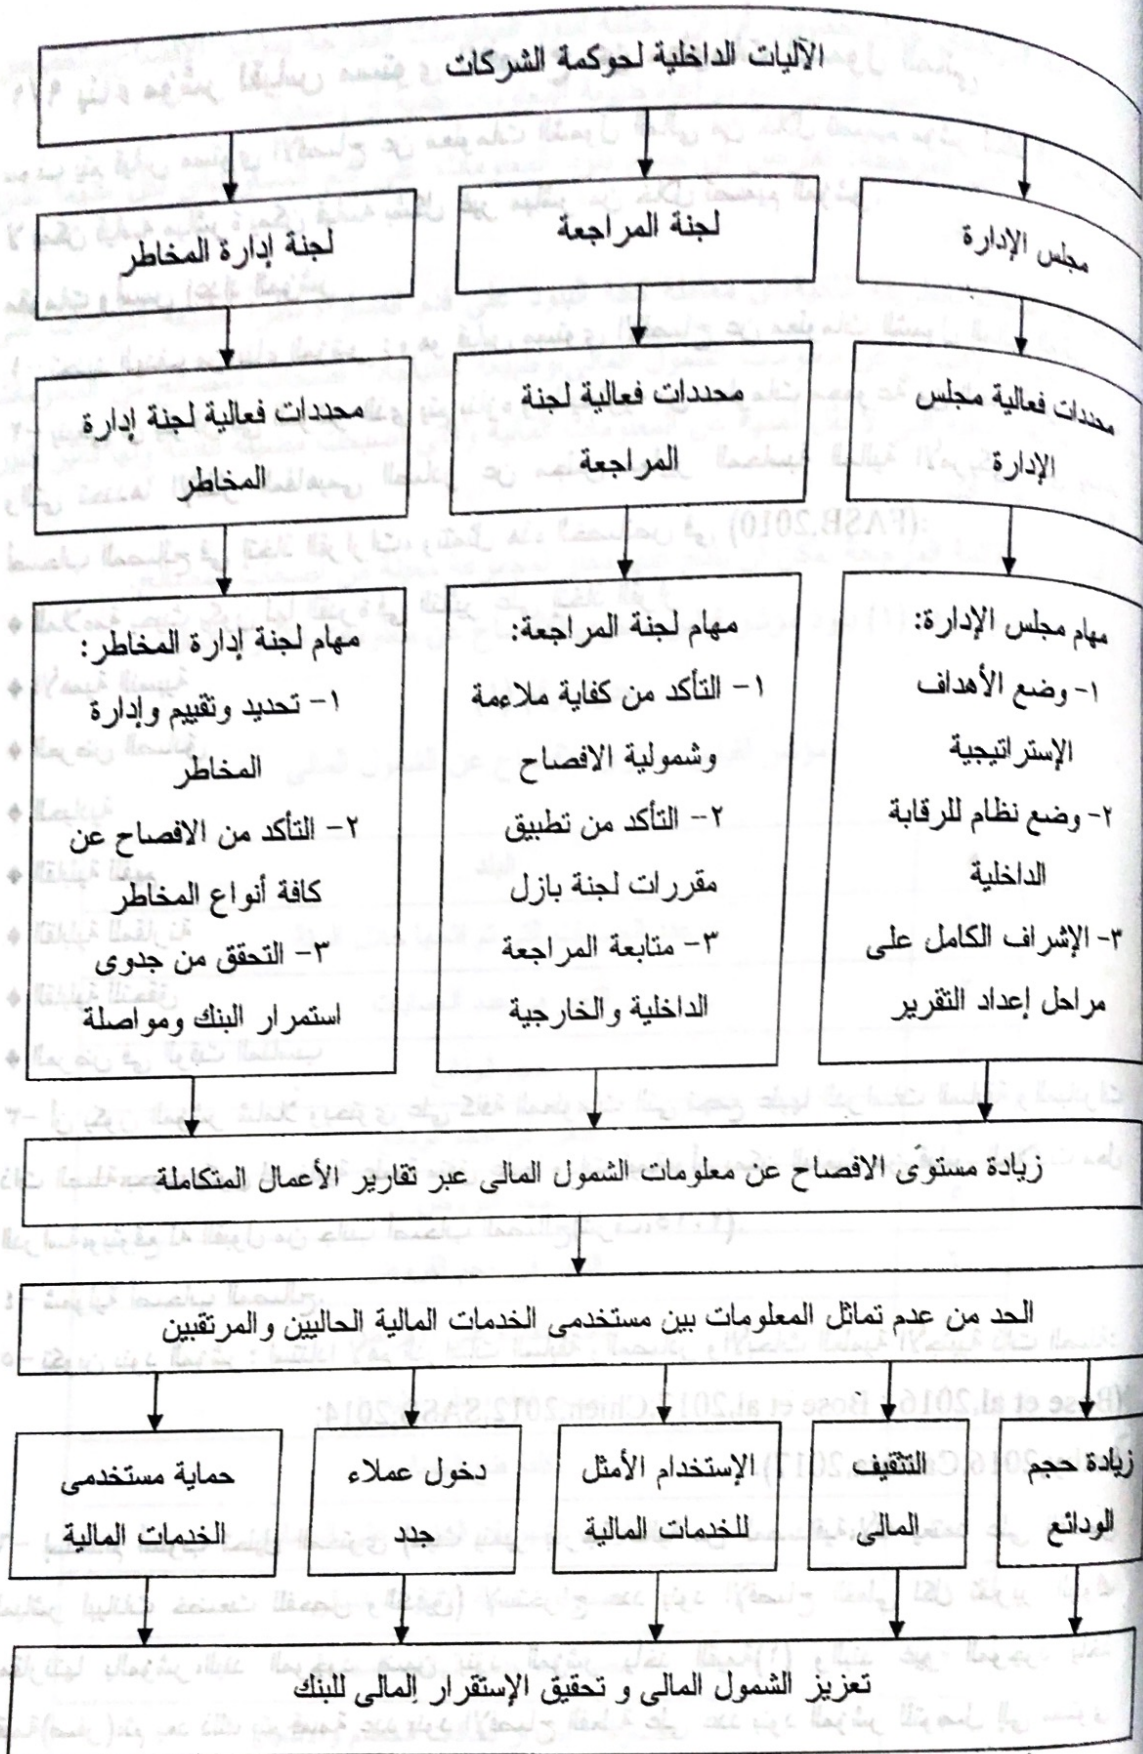 الآليات الداخلية لحوكمة الشركات
مجلس الإدارة
لجنة المراجعة
لجنة إدارة المخاطر
محددات فعالية مجلس
الإدارة
محددات فعالية لجنة
المراجعة
محددات فعالية لجنة إدارة
المخاطر
مهام مجلس الإدارة:
١- وضع الأهداف
الإستراتيجية
٢- وضع نظام للرقابة
الداخلية
٣- الإشراف الكامل على
مراحل إعداد التقرير
مهام لجنة المراجعة:
١- التأكد من كفاية ملاءمة
وشمولية الافصاح
٢- التأكد من تطبيق
مقررات لجنة بازل
٣- متابعة المراجعة
الداخلية والخارجية
مهام لجنة إدارة المخاطر:
١- تحديد وتقييم وإدارة
المخاطر
٢- التأكد من الافصاح عن
كافة أنواع المخاطر
٣- التحقق من جدوى
استمرار البنك ومواصلة
زيادة مستوى الافصاح عن معلومات الشمول المالى عبر تقارير الأعمال المتكاملة
الحد من عدم تماثل المعلومات بين مستخدمى الخدمات المالية الحاليين والمرتقبين
زيادة حجم
الودائع
التثقيف
المالى
الإستخدام الأمثل
للخدمات المالية
دخول عملاء
جدد
حماية مستخدمى
الخدمات المالية
تعزيز الشمول المالى و تحقيق الإستقرار المالى للبنك